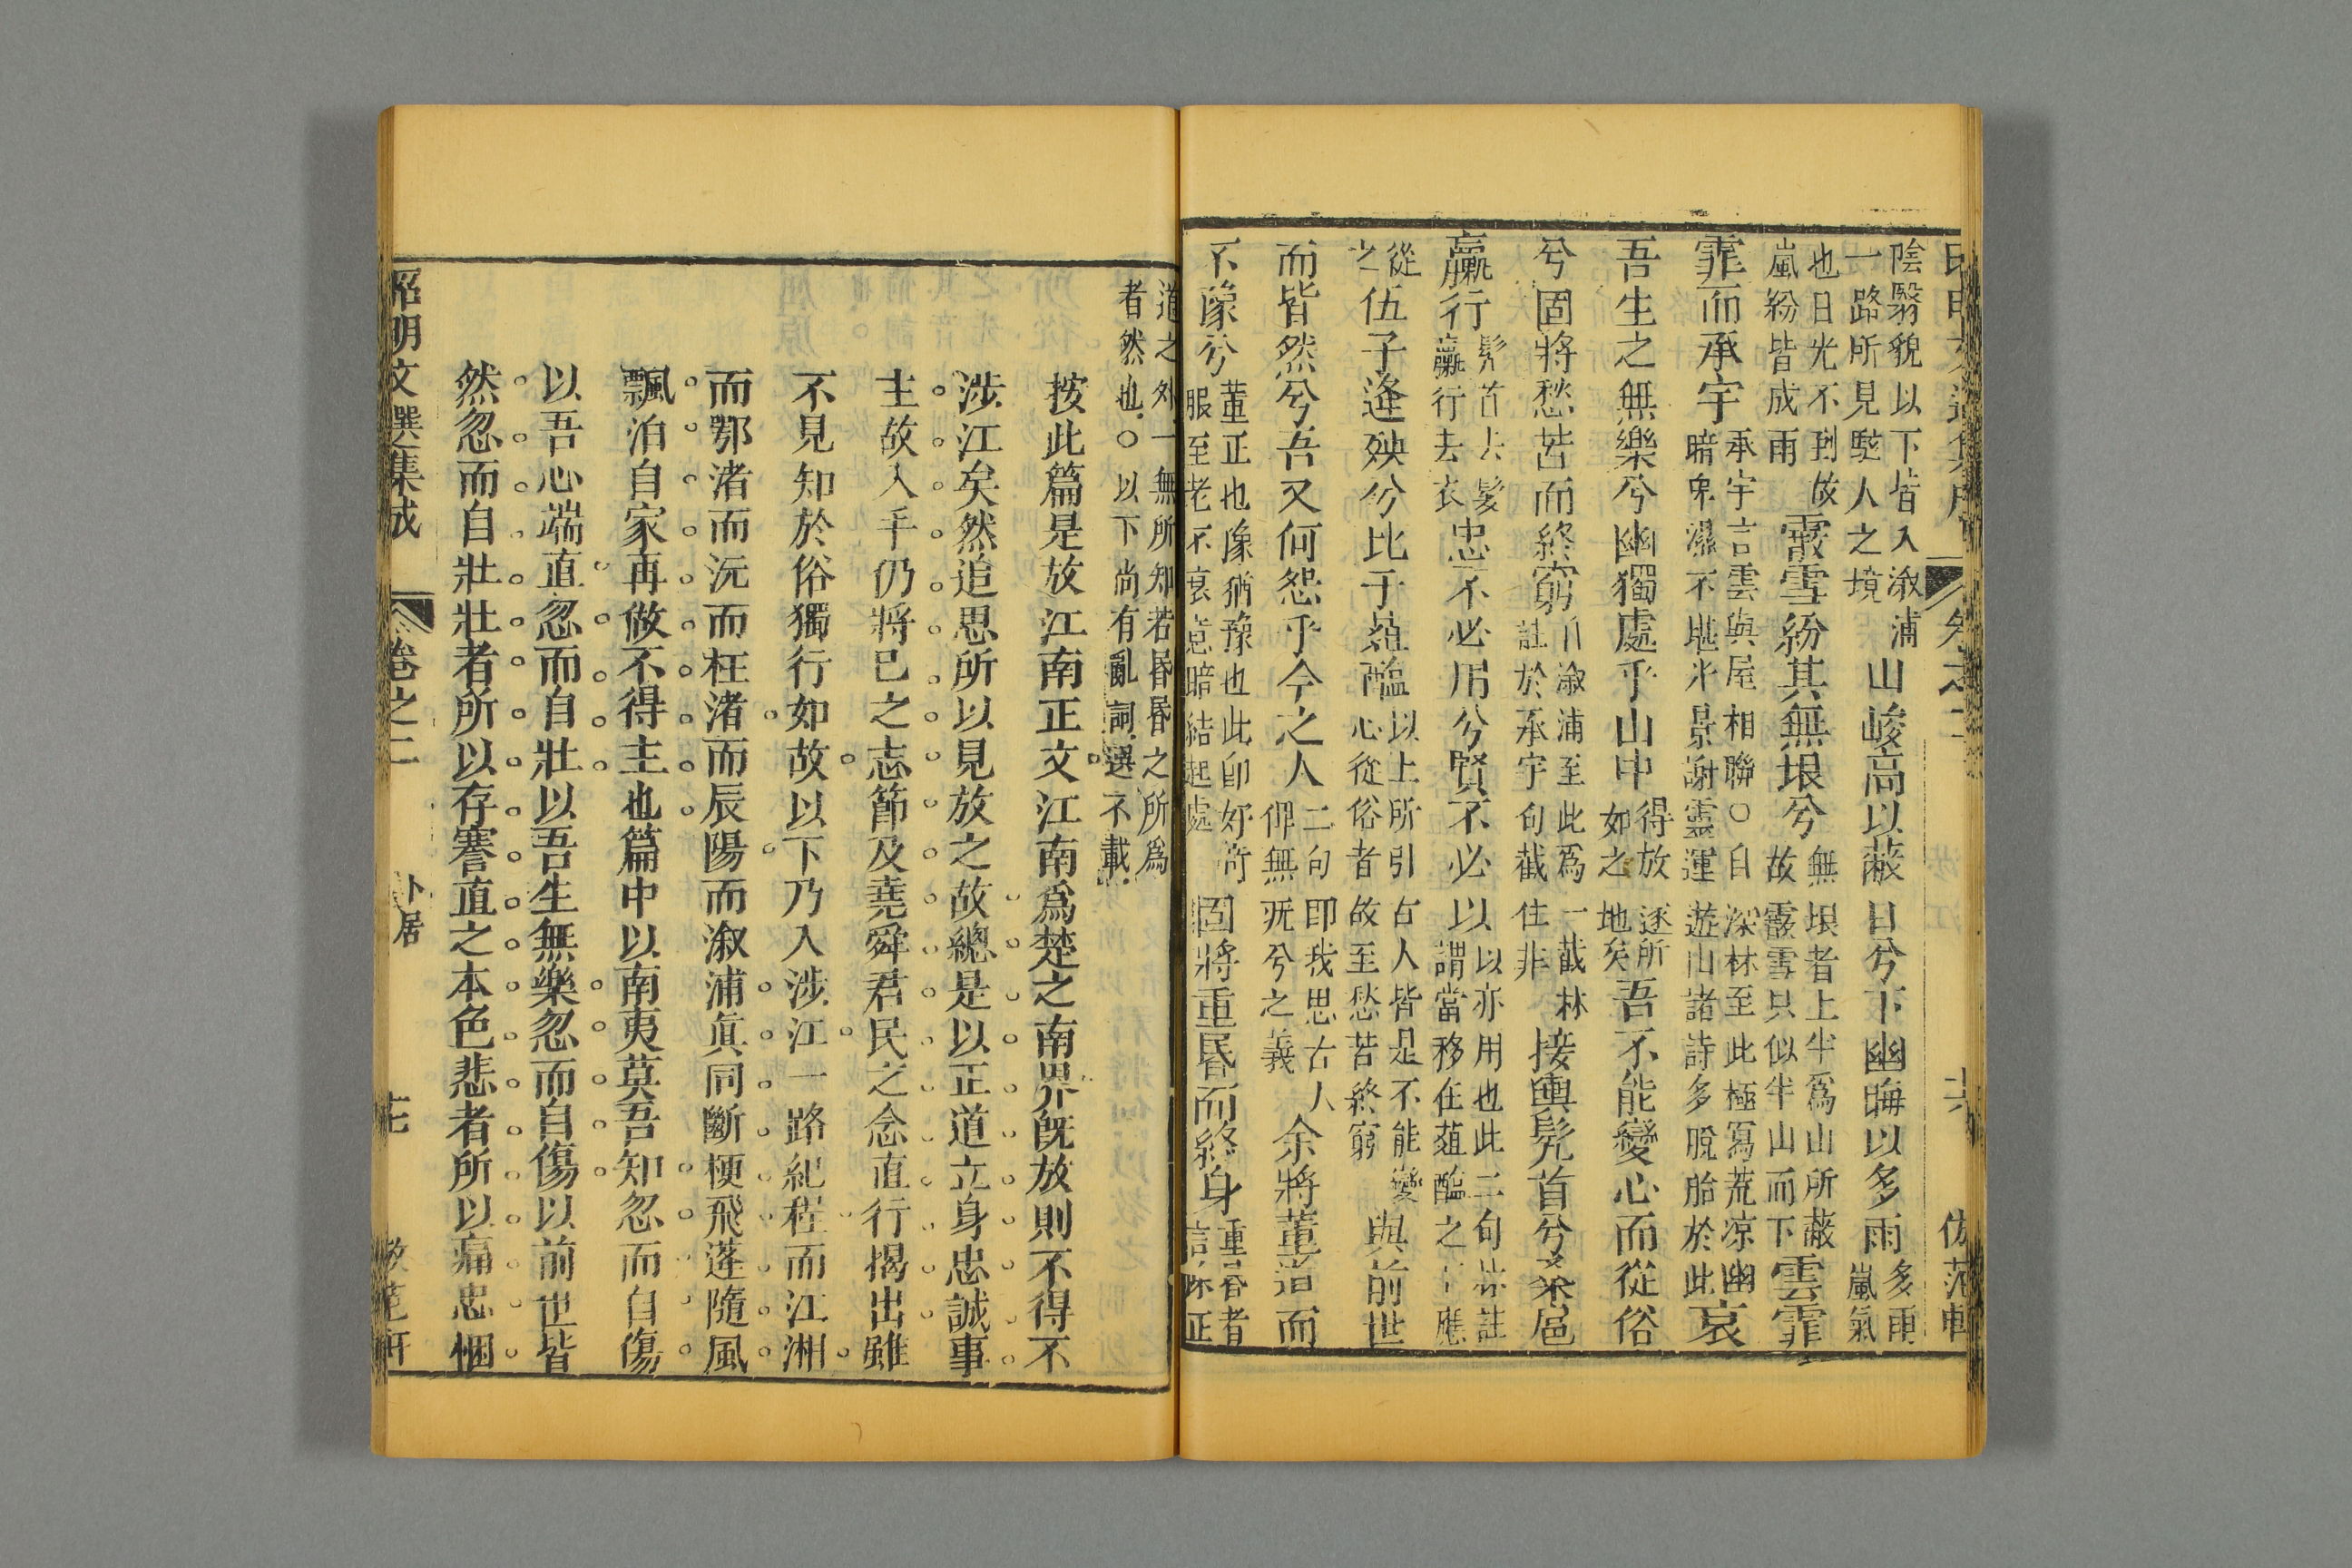 陰翳貌以下皆入漵浦一路所見駭人之境山峻高以蔽日兮下幽晦以多雨多雨嵐氣
也日光不到故嵐紛皆成雨霰雪紛其無垠兮無垠者上半爲山所蔽故霰雪只似半山而下雲霏
霏而承宇承宇言雲與屋相聯○自深林至此極寫荒凉幽暗卑濕不堪光景謝靈運遊山諸詩多脫胎於此哀
吾生之無樂兮幽獨處乎山中得放逐所如之地矣吾不能變心而從俗
兮固將愁苦而終窮自漵浦至此爲一截林註於承宇句截住非接輿髡首兮桑扈
臝行髡首去髮臝行去衣忠不必用兮賢不必以以亦用也此二句林註謂當移在葅醢之下應
從之伍子逢殃兮比干葅醢以上所引古人皆是不能變心從俗者故至愁苦終窮與前世
而皆然兮吾又何怨乎今之人二句即我思古人俾無訧兮之義余將董道而
不豫兮董正也豫猶豫也此卽好奇服至老不衰意暗結起處固將重昏而終身重昏者言除正
道之外一無所知若昏昏之所爲者然也○以下尚有亂詞選不載
按此篇是放江南正文江南爲楚之南界旣放則不得不
涉江矣然追思所以見放之故總是以正道立身忠誠事
主故入手仍將已之志節及堯舜君民之念直行揭出雖
不見知於俗獨行如故以下乃入涉江一路紀程而江湘
而鄂渚而沅而枉渚而辰陽而漵浦眞同斷梗飛蓬隨風
飄泊自家再做不得主也篇中以南夷莫吾知忽而自傷
以吾心端直忽而自壯以吾生無樂忽而自傷以前世皆
然忽而自壯壯者所以存謇直之本色悲者所以痛忠悃
昭明文選集成 卷之二 卜居 十七